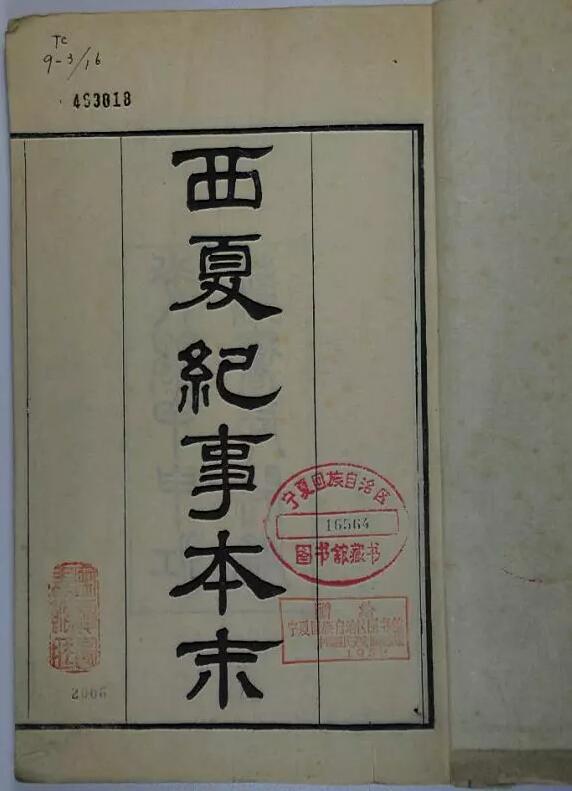 TC
9-3/16
493818
西夏紀事本末
宁夏回族自治区
16564
图书馆藏书
赠给
宁夏回族自治区图书馆
2006